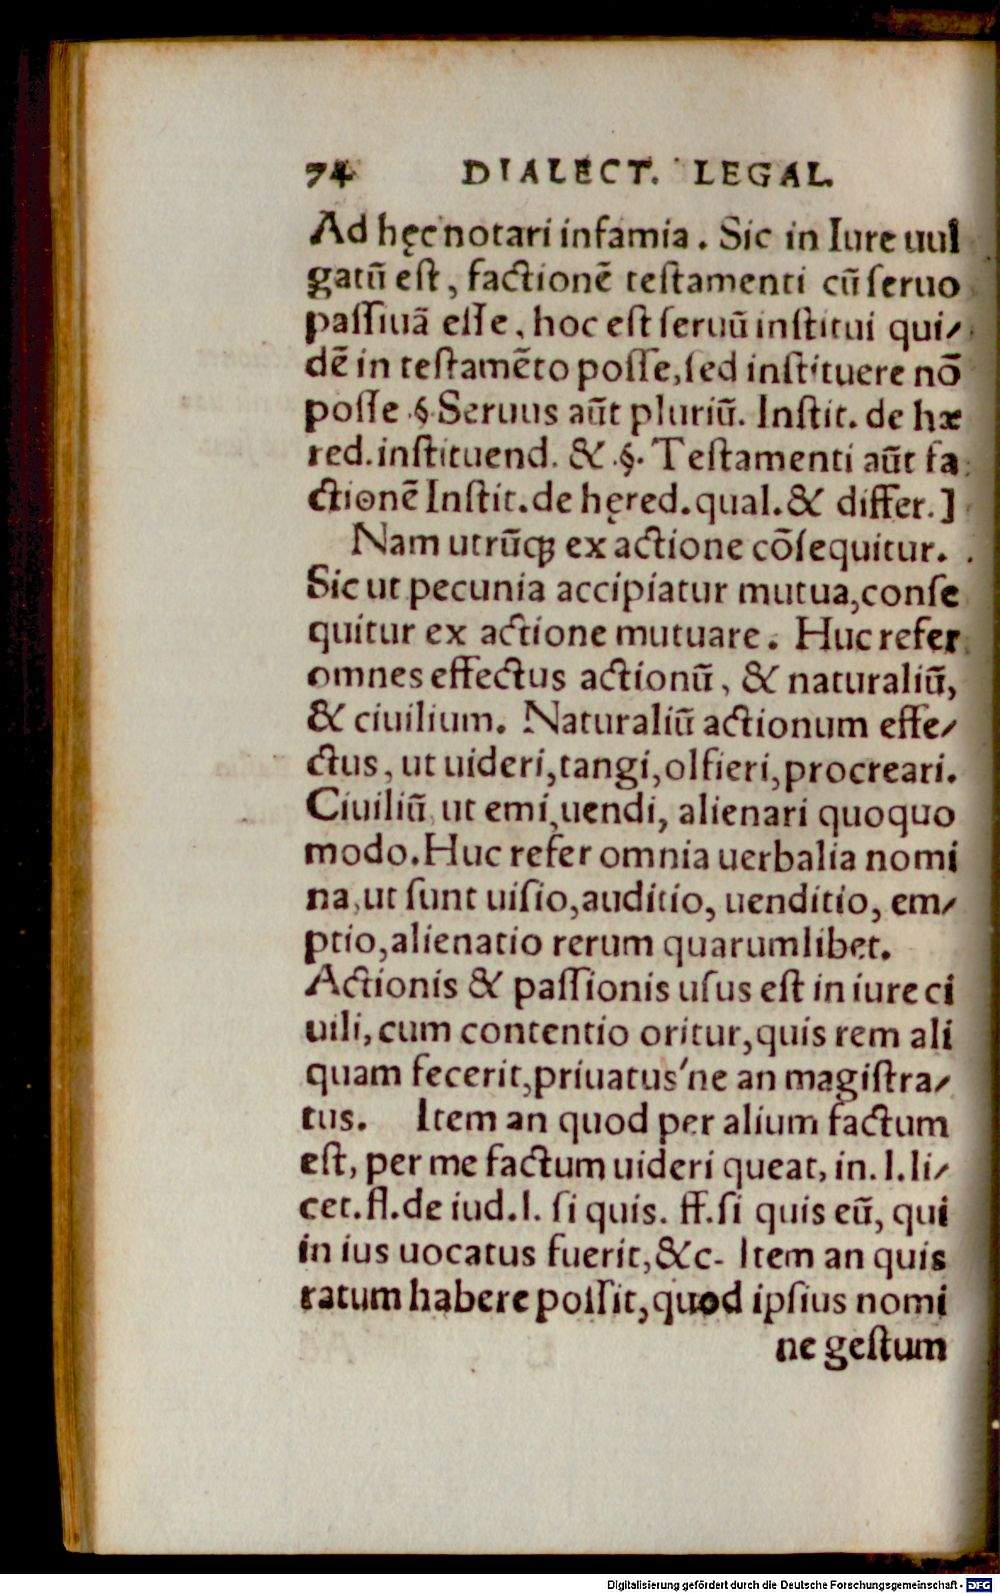 74 DIALECT. LEGAL.
Ad hęc notari infamia. Sic in Iure uul
gatū est, factionē testamenti cū seruo
passiuā esse, hoc est seruū institui qui-
dē in testamēto posse, sed instituere nō
posse .§. Seruus aūt pluriū. Instit. de hæ
red. instituend. & .§. Testamenti aūt fa
ctionē Instit. de hęred. qual. & differ.]
Nam utrūq; ex actione cōsequitur.
Sic ut pecunia accipiatur mutua, conse
quitur ex actione mutuare. Huc refer
omnes effectus actionū, & naturaliū,
& ciuilium. Naturaliū actionum effe-
ctus, ut uideri, tangi, olfieri, procreari.
Ciuiliū, ut emi, uendi, alienari quoquo
modo. Huc refer omnia uerbalia nomi
na, ut sunt uisio, auditio, uenditio, em-
ptio, alienatio rerum quarumlibet.
Actionis & passionis usus est in iure ci
uili, cum contentio oritur, quis rem ali
quam fecerit, priuatus'ne an magistra-
tus. Item an quod per alium factum
est, per me factum uideri queat, in. l. li-
cet. fl. de iud. l. si quis. ff. si quis eū, qui
in ius uocatus fuerit, &c. Item an quis
ratum habere possit, quod ipsius nomi
ne gestum
Digitalisierung gefördert durch die Deutsche Forschungsgemeinschaft - DFG